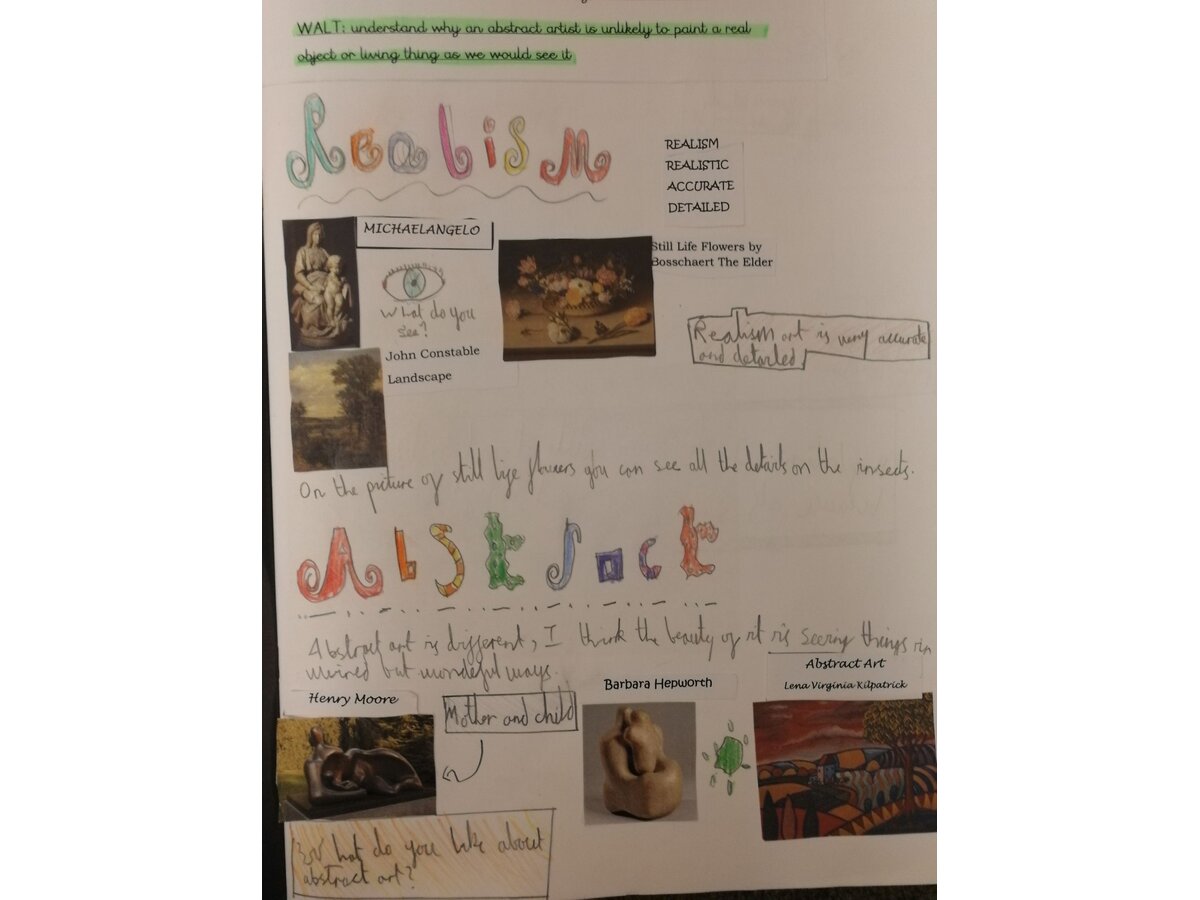 WALT: understand why an abstract artist is unlikely to paint a real
object or living thing as we would see it
Realism
REALISM
REALISTIC
ACCURATE
DETAILED
MICHAELANGELO
What do you
see?
Still Life Flowers by
Bosschaert The Elder
John Constable
Landscape
Realism art is very accurate
and detailed
On the picture of still life flowers you can see all the details on the insects.
Abstract
Abstract art is different, I think the beauty of it is seeing things in
weired but wondeful ways.
Henry Moore
Mother and child
Barbara Hepworth
Abstract Art
Lena Virginia Kilpatrick
What do you like about
abstract art?